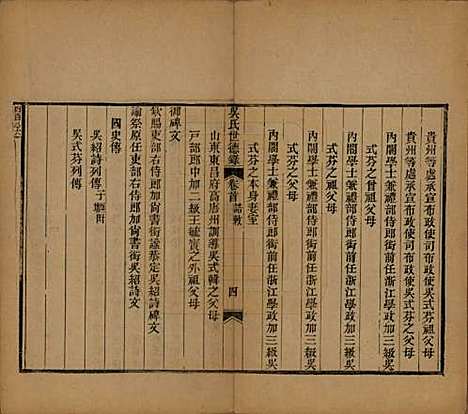 貴州等處承宣布政使司布政使吳式芬祖父母
貴州等處承宣布政使司布政使吳式芬父母
內閣學士兼禮部侍郎銜前任浙江學政加三級吳
式芬之曾祖父母
內閣學士兼禮部侍郎銜前任浙江學政加三級吳
式芬之祖父母
內閣學士兼禮部侍郎銜前任浙江學政加三級吳
式芬之父母
內閣學士兼禮部侍郎銜前任浙江學政加三級吳
式芬之本身妻室
吳氏世德錄 卷首 誥敕 四
山東東昌府高唐州訓導吳式韓之父母
戶部郎中加二級王毓寶之外祖父母
御碑文
欽賜吏部右侍郎加尚書銜謚恭定吳紹詩碑文
諭祭原任吏部右侍郎加尚書銜吳紹詩文
國史傳
吳紹詩列傳子壇
吳式芬列傳